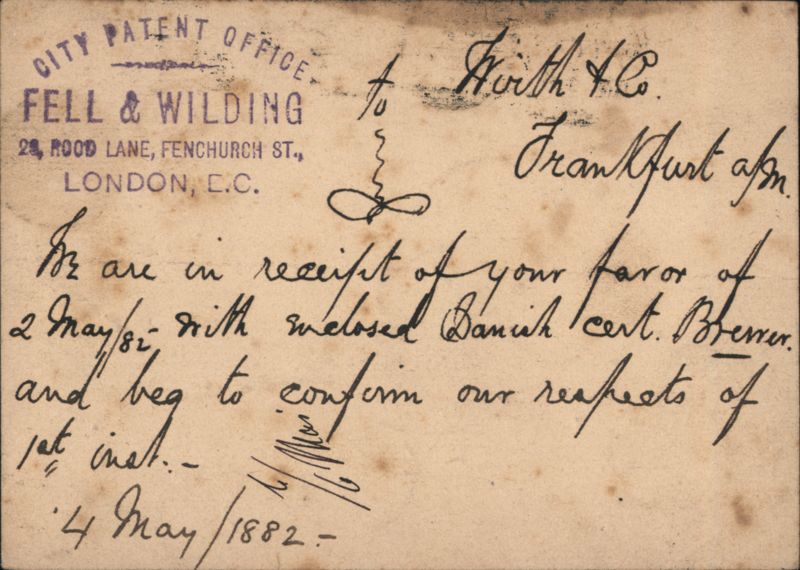 CITY PATENT OFFICE.
FELL & WILDING
LANE, FENCHURCH ST.,
LONDON, E.C.
to Wirth & Co.
Frankfurt a/M.
We are in receipt of your favor of
2 May/82 with enclosed Danish cert. Brewer.
and beg to confirm our respects of
1st inst.-
4 May/1882.-